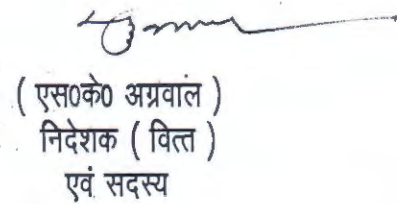 ( एस०के० अग्रवाल )
निदेशक ( वित्त )
एवं सदस्य